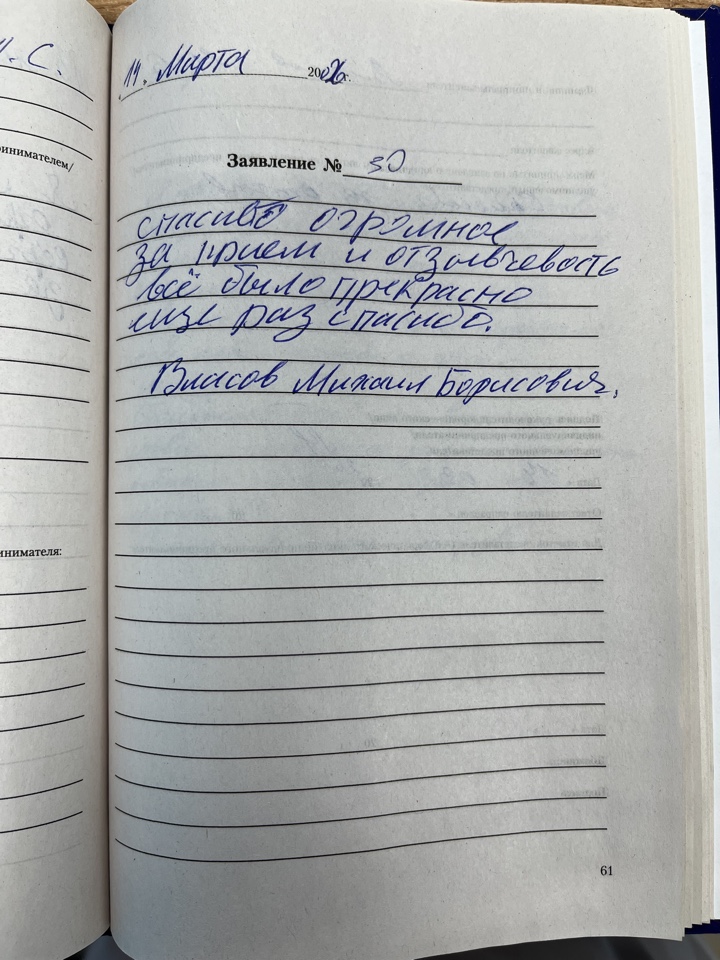 И. С.
ринимателем/
инимателя:
14. Марта 20 г.
Заявление № 30
спасибо огромное
за прием и отзывчевость
всё было прекрасно
еще раз спасибо.
Власов Михаил Борисович.
61